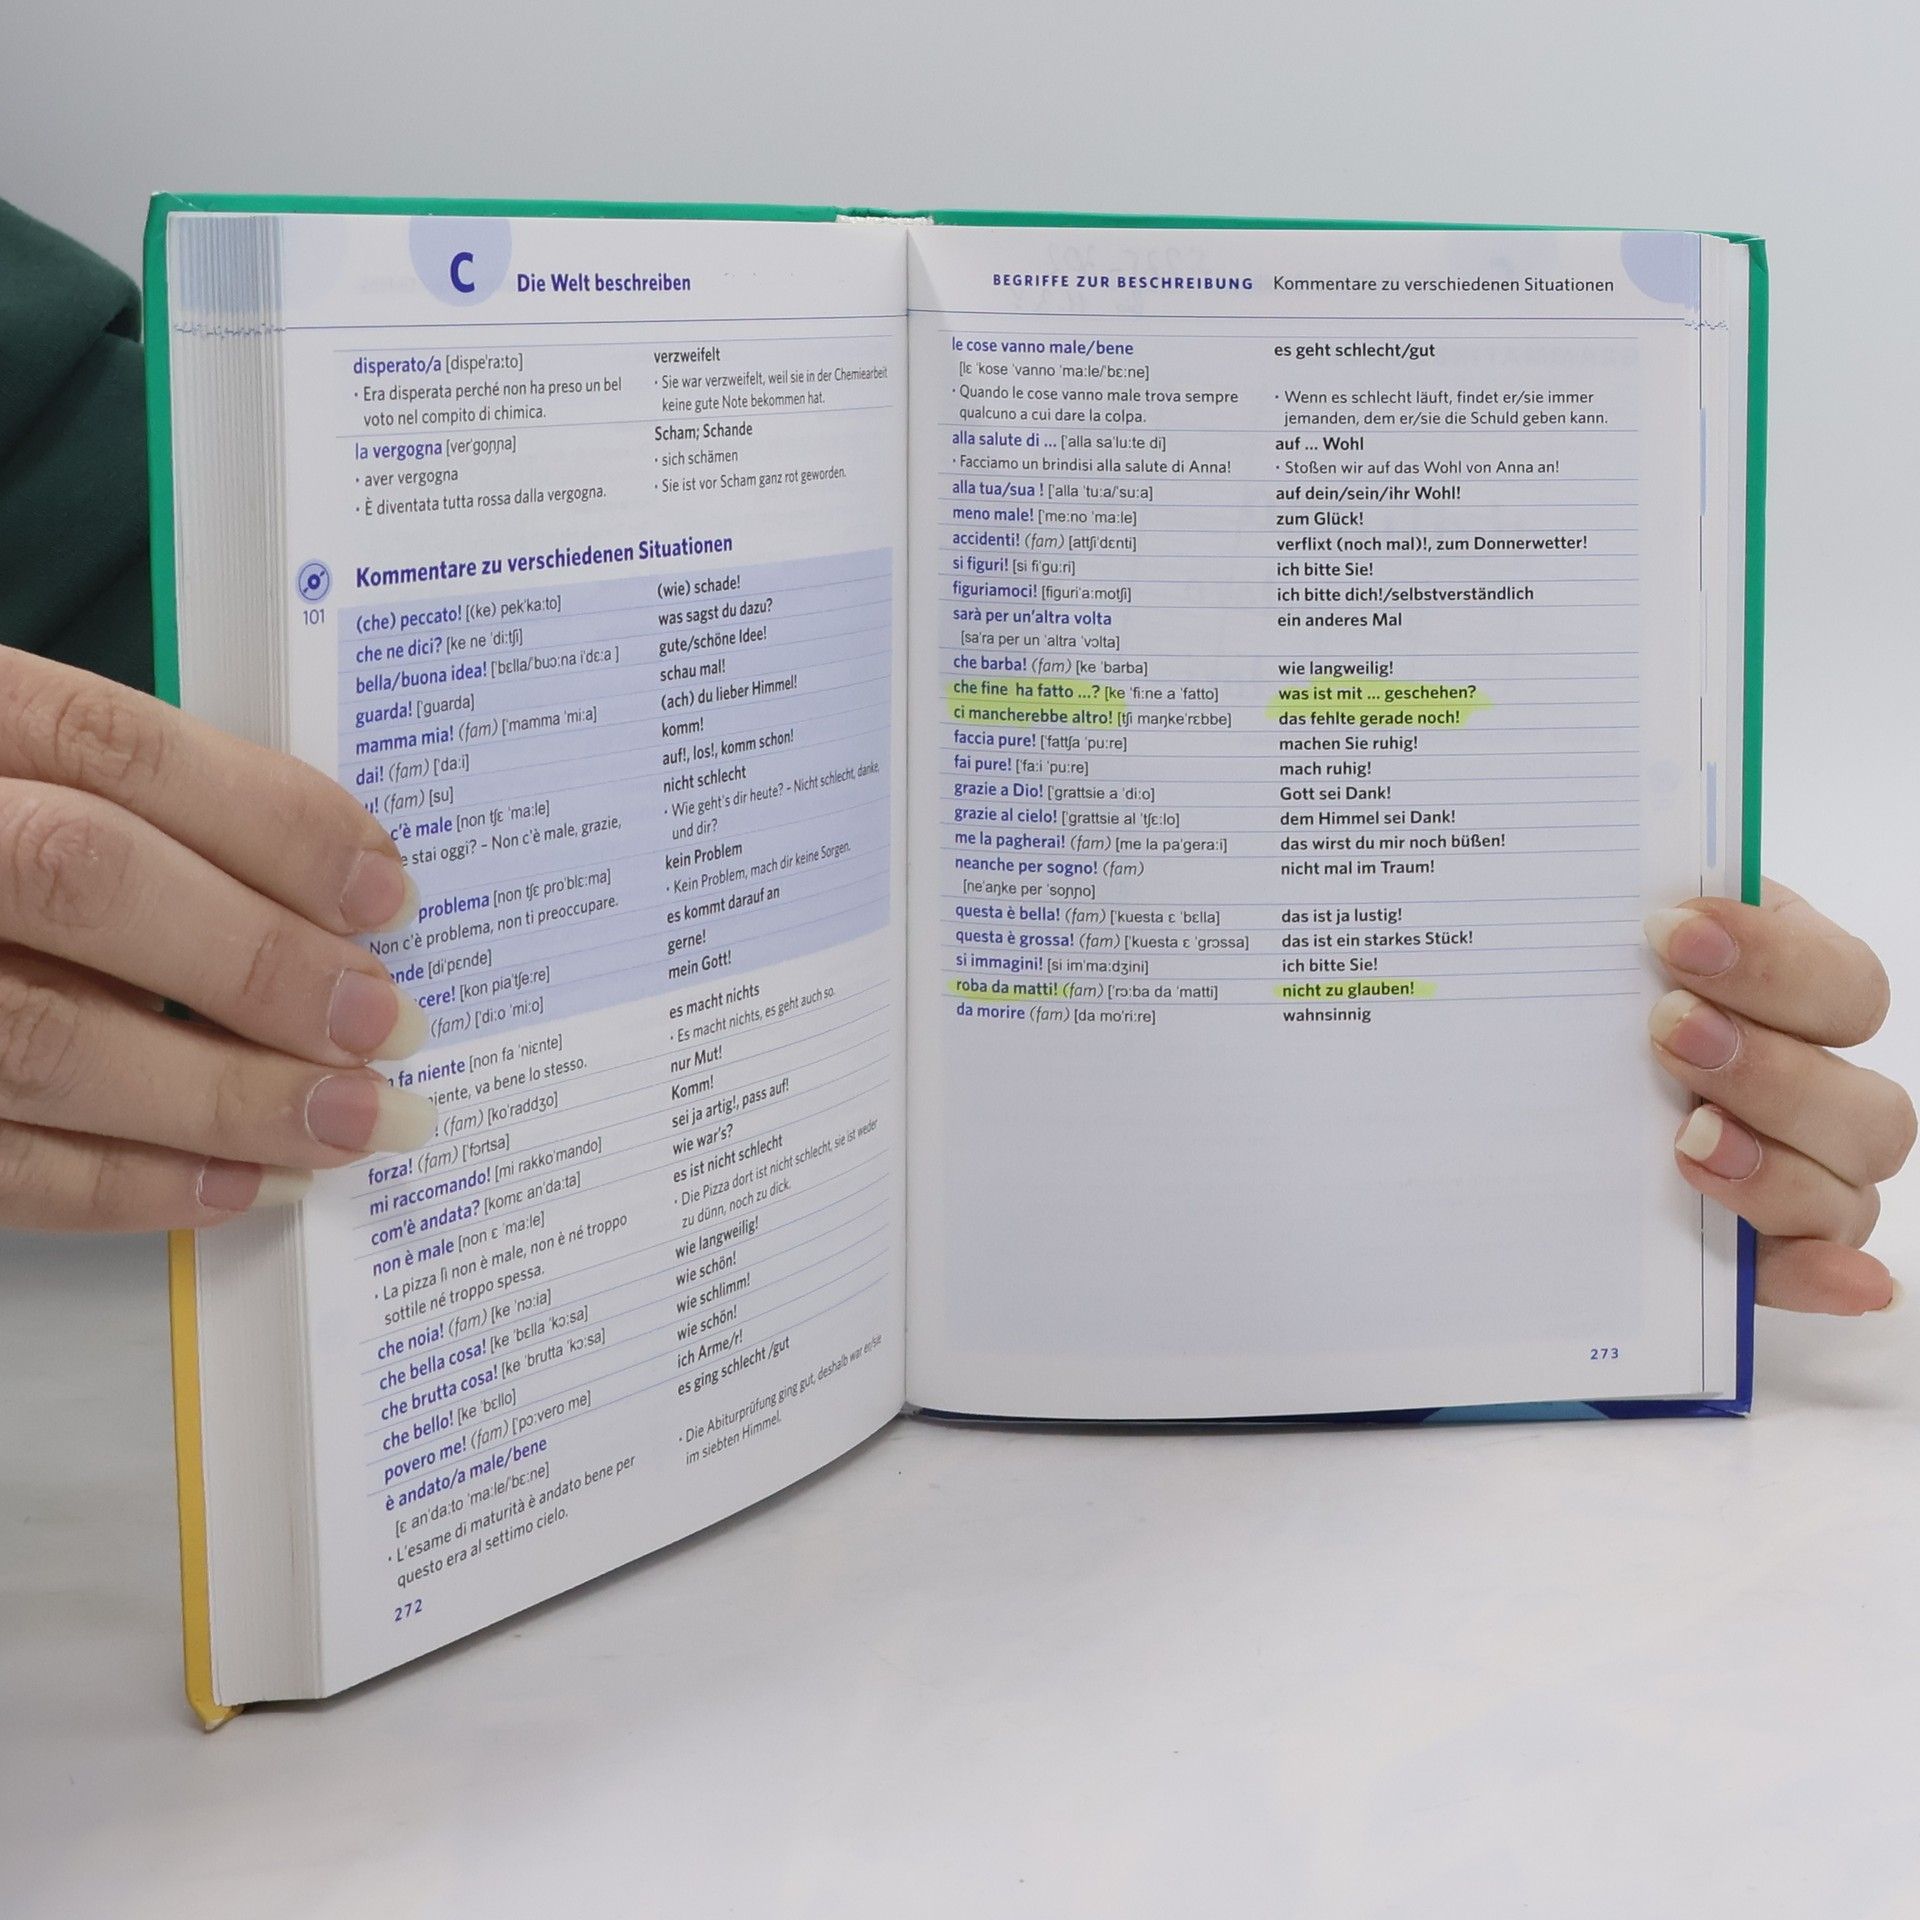 C Die Welt beschreiben
disperato/a [dispeˈraːto] verzweifelt
· Era disperata perché non ha preso un bel · Sie war verzweifelt, weil sie in der Chemiearbeit
voto nel compito di chimica. keine gute Note bekommen hat.
la vergogna [verˈɡoɲɲa] Scham; Schande
· aver vergogna · sich schämen
· È diventata tutta rossa dalla vergogna. · Sie ist vor Scham ganz rot geworden.
Kommentare zu verschiedenen Situationen
101
(che) peccato! [(ke) pekˈkaːto] (wie) schade!
che ne dici? [ke ne ˈdiːtʃi] was sagst du dazu?
bella/buona idea! [ˈbɛlla/ˈbuɔːna iˈdɛːa ] gute/schöne Idee!
guarda! [ˈguarda] schau mal!
mamma mia! (fam) [ˈmamma ˈmiːa] (ach) du lieber Himmel!
dai! (fam) [ˈdaːi] komm!
u! (fam) [su] auf!, los!, komm schon!
c'è male [non tʃɛ ˈmaːle] nicht schlecht
e stai oggi? – Non c'è male, grazie, · Wie geht's dir heute? – Nicht schlecht, danke,
und dir?
problema [non tʃɛ proˈblɛːma] kein Problem
Non c'è problema, non ti preoccupare. · Kein Problem, mach dir keine Sorgen.
nde [diˈpɛnde] es kommt darauf an
cere! [kon piaˈtʃeːre] gerne!
(fam) [ˈdiːo ˈmiːo] mein Gott!
fa niente [non fa ˈniɛnte] es macht nichts
niente, va bene lo stesso. · Es macht nichts, es geht auch so.
! (fam) [koˈraddʒo] nur Mut!
forza! (fam) [ˈfɔrtsa] Komm!
mi raccomando! [mi rakkoˈmando] sei ja artig!, pass auf!
com'è andata? [komɛ anˈdaːta] wie war's?
non è male [non ɛ ˈmaːle] es ist nicht schlecht
· La pizza lì non è male, non è né troppo · Die Pizza dort ist nicht schlecht, sie ist weder
sottile né troppo spessa. zu dünn, noch zu dick.
che noia! (fam) [ke ˈnɔːia] wie langweilig!
che bella cosa! [ke ˈbɛlla ˈkɔːsa] wie schön!
che brutta cosa! [ke ˈbrutta ˈkɔːsa] wie schlimm!
che bello! [ke ˈbɛllo] wie schön!
povero me! (fam) [ˈpɔːvero me] ich Arme/r!
è andato/a male/bene es ging schlecht /gut
[ɛ anˈdaːto ˈmaːle/ˈbɛːne]
· L'esame di maturità è andato bene per · Die Abiturprüfung ging gut, deshalb war er/sie
questo era al settimo cielo. im siebten Himmel.
272
BEGRIFFE ZUR BESCHREIBUNG Kommentare zu verschiedenen Situationen
le cose vanno male/bene es geht schlecht/gut
[lɛ ˈkose ˈvanno ˈmaːle/ˈbɛːne]
· Quando le cose vanno male trova sempre · Wenn es schlecht läuft, findet er/sie immer
qualcuno a cui dare la colpa. jemanden, dem er/sie die Schuld geben kann.
alla salute di ... [ˈalla saˈluːte di] auf ... Wohl
· Facciamo un brindisi alla salute di Anna! · Stoßen wir auf das Wohl von Anna an!
alla tua/sua ! [ˈalla ˈtuːa/ˈsuːa] auf dein/sein/ihr Wohl!
meno male! [ˈmeːno ˈmaːle] zum Glück!
accidenti! (fam) [attʃiˈdɛnti] verflixt (noch mal)!, zum Donnerwetter!
si figuri! [si fiˈguːri] ich bitte Sie!
figuriamoci! [figuriˈaːmotʃi] ich bitte dich!/selbstverständlich
sarà per un'altra volta ein anderes Mal
[saˈra per un ˈaltra ˈvɔlta]
che barba! (fam) [ke ˈbarba] wie langweilig!
che fine ha fatto ...? [ke ˈfiːne a ˈfatto] was ist mit ... geschehen?
ci mancherebbe altro! [tʃi maŋkeˈrɛbbe] das fehlte gerade noch!
faccia pure! [ˈfattʃa ˈpuːre] machen Sie ruhig!
fai pure! [ˈfaːi ˈpuːre] mach ruhig!
grazie a Dio! [ˈgrattsie a ˈdiːo] Gott sei Dank!
grazie al cielo! [ˈgrattsie al ˈtʃɛːlo] dem Himmel sei Dank!
me la pagherai! (fam) [me la paˈgeraːi] das wirst du mir noch büßen!
neanche per sogno! (fam) nicht mal im Traum!
[neˈaŋke per ˈsoɲɲo]
questa è bella! (fam) [ˈkuesta ɛ ˈbɛlla] das ist ja lustig!
questa è grossa! (fam) [ˈkuesta ɛ ˈgrɔssa] das ist ein starkes Stück!
si immagini! [si imˈmaːdʒini] ich bitte Sie!
roba da matti! (fam) [ˈrɔːba da ˈmatti] nicht zu glauben!
da morire (fam) [da moˈriːre] wahnsinnig
273